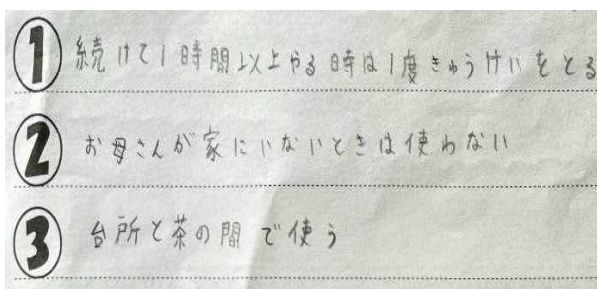 ① 続けて1時間以上やる時は1度きゅうけいをとる
② お母さんが家にいないときは使わない
③ 台所と茶の間で使う